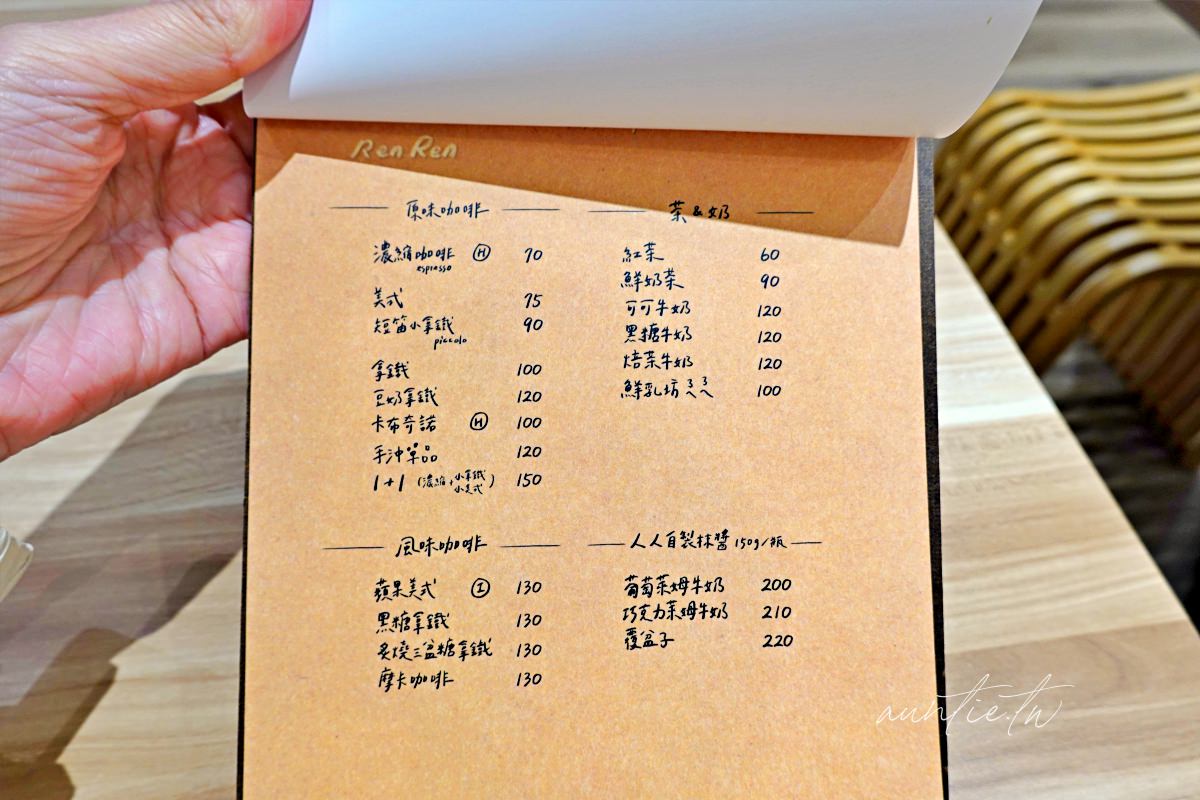 Ren Ren
原味咖啡
濃縮咖啡 H 70
espresso
美式 75
短笛小拿鐵 90
piccolo
拿鐵 100
豆奶拿鐵 120
卡布奇諾 H 100
手沖單品 120
1+1 (濃縮+小拿鐵 小美式) 150
風味咖啡
蘋果美式 I 130
黑糖拿鐵 130
炙燒三盆糖拿鐵 130
摩卡咖啡 130
茶&奶
紅茶 60
鮮奶茶 90
可可牛奶 120
黑糖牛奶 120
焙茶牛奶 120
鮮乳坊ㄋㄟㄋㄟ 100
人人自製抹醬 150g/瓶
葡萄萊姆牛奶 200
巧克力萊姆牛奶 210
覆盆子 220
auntie.tw